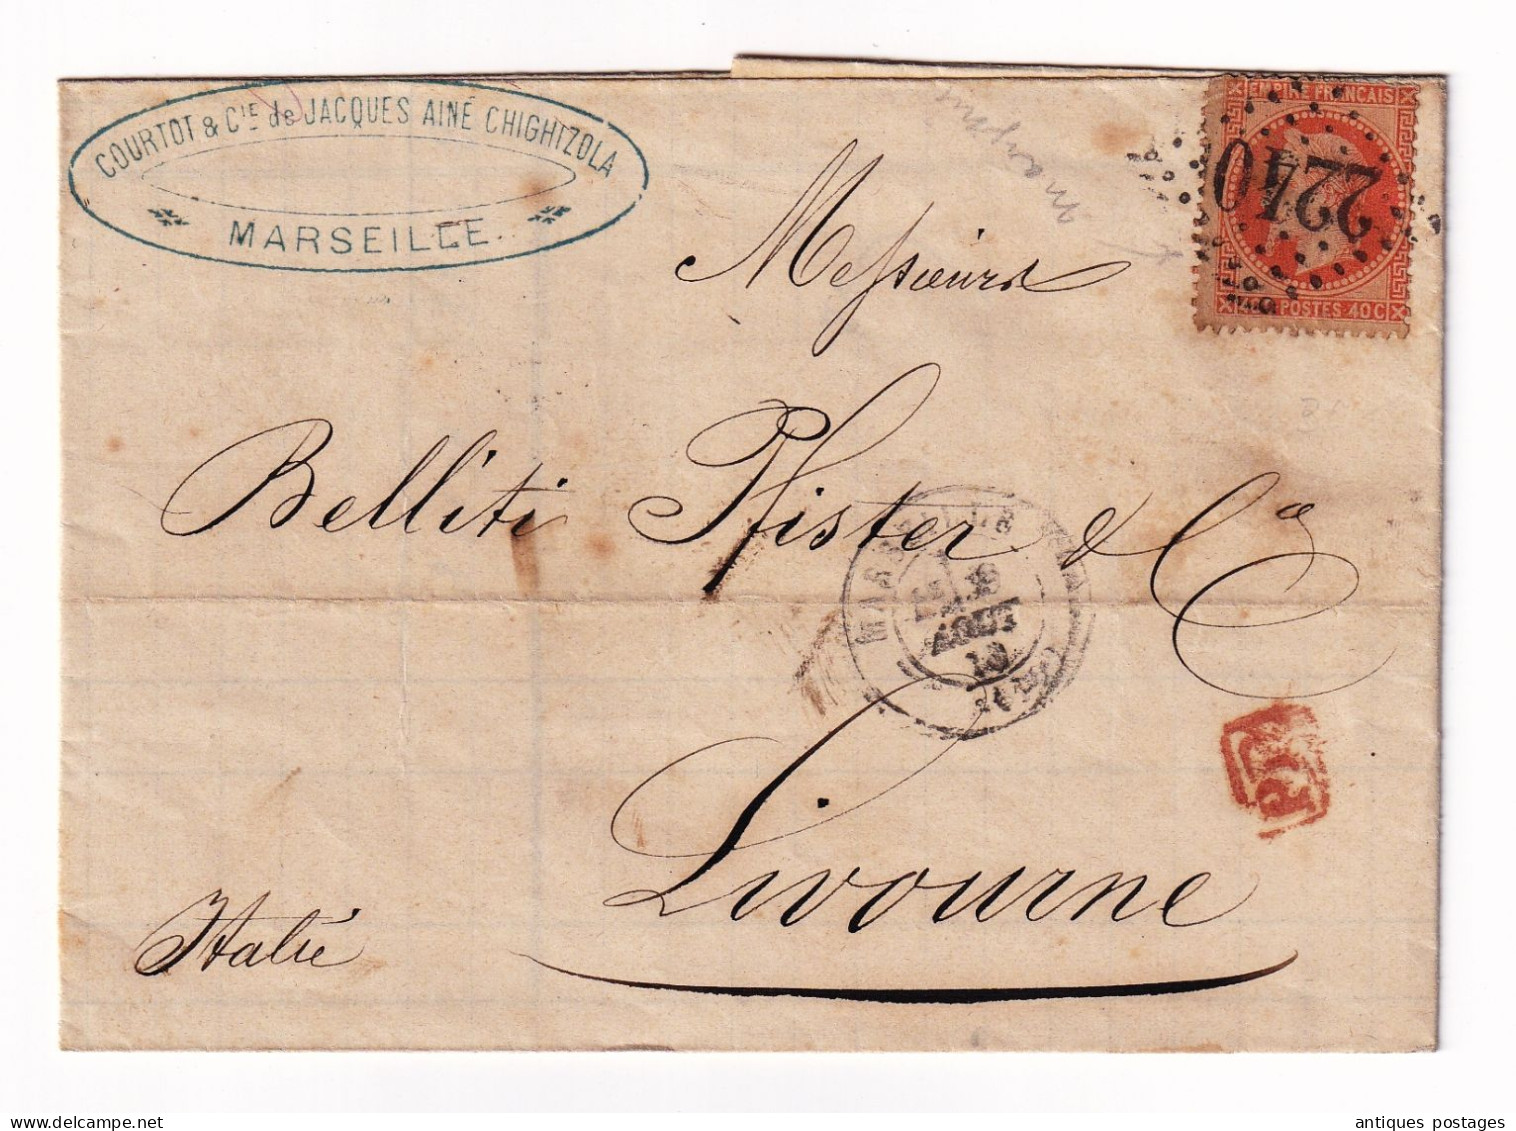 COURTOT & CIE de JACQUES AINÉ CHIGHIZOLA
MARSEILLE.
EMPIRE FRANÇAIS
2240
POSTES 40C
Messieurs
Belliti Pfister & Ce
MARSEILLE
AOUT
PD
Livourne
Italie
antiques postages